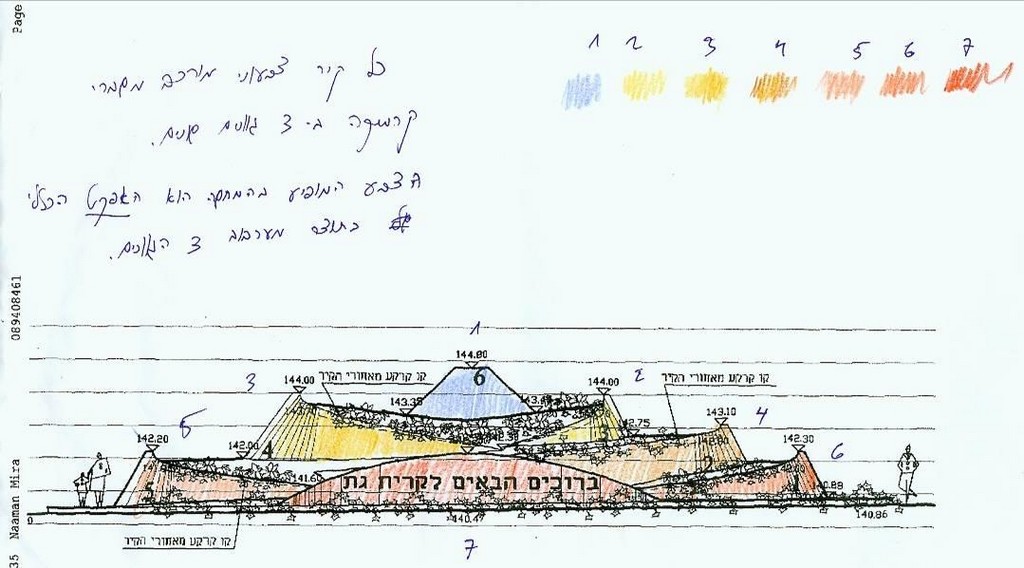 Page
1 2 3 4 5 6 7
כל קיר צבעוני מורכב משברי
קרמיקה ב- 3 גוונים שונים.
הצבע המופיע בהמחשה הוא האפקט הכללי
כתוצר מערבוב 3 הגוונים.
089408461
Naaman Mira
35
1
144.80
6
3
144.00
קו קרקע מאחורי הקיר
143.35
144.00
2
קו קרקע מאחורי הקיר
5
142.20
142.00
4
3
142.75
143.10
4
142.30
6
141.60
2
1
ברוכים הבאים לקרית גת
140.88
140.86
140.47
0
קו קרקע מאחורי הקיר
7